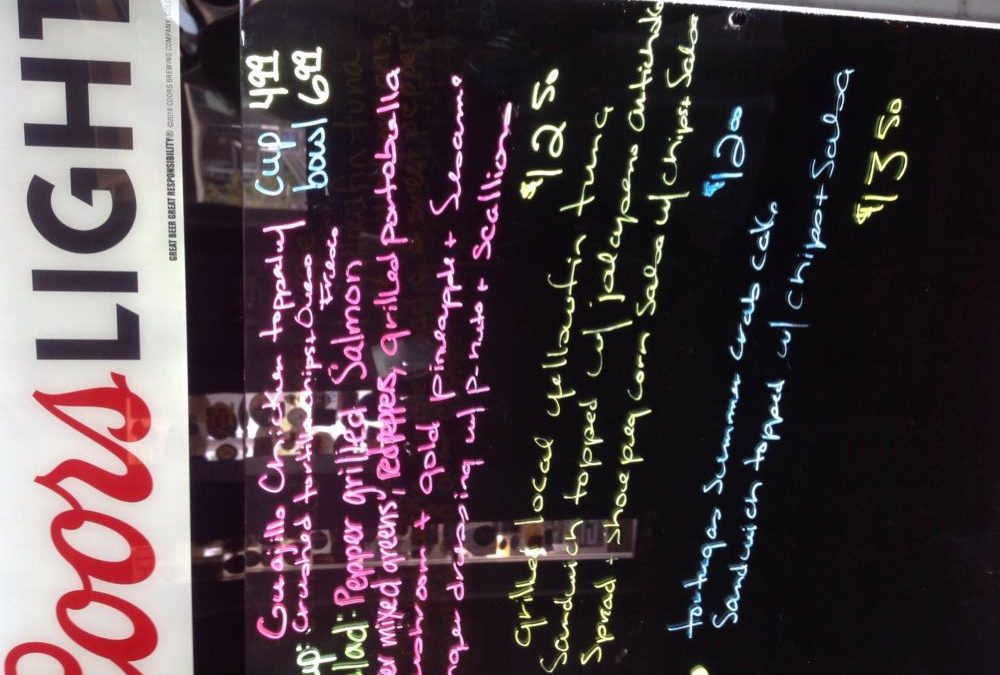 Coors LIGHT
GREAT BEER GREAT RESPONSIBILITY® ©2018 COORS BREWING COMPANY
up: Guajillo Chicken topped w/ cup 4.99
crushed tortilla chips + Queso Fresco bowl 6.99
lad: Pepper grilled Salmon
er mixed greens, red peppers, grilled portabella
ushroom + gold pineapple + Sesame
nger dressing w/ p-nuts + Scallions
grilled local yellowfin tuna $12 50
Sandwich topped w/ jalapeno Artichoke
Spread + shoepeg corn Salsa w/ chips + Salsa
Summer crab cake $12 00
Sandwich topped w/ chips + Salsa
$13 50